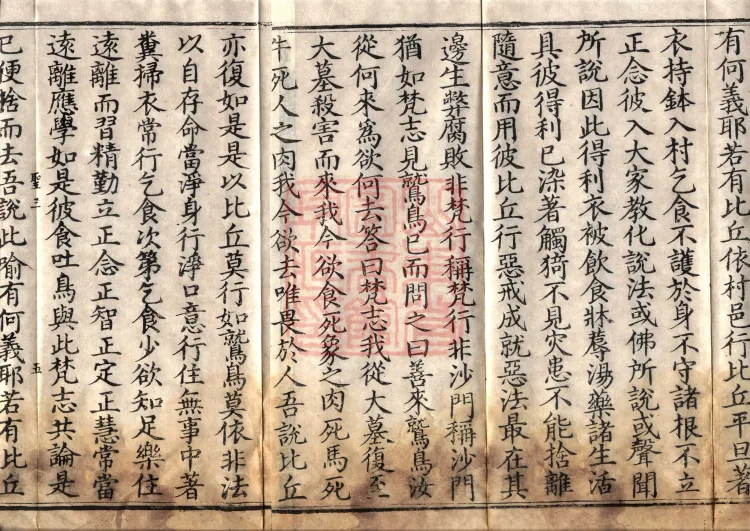 有何義耶若有比丘依村邑行比丘平旦著
衣持鉢入村乞食不護於身不守諸根不立
正念彼入大家教化說法或佛所說或聲聞
所說因此得利衣被飲食牀蓐湯藥諸生活
具彼得利已染著觸猗不見灾患不能捨離
隨意而用彼比丘行惡戒成就惡法最在其
邊生弊腐敗非梵行稱梵行非沙門稱沙門
猶如梵志見鷲鳥已而問之曰善來鷲鳥汝
從何來為欲何去答曰梵志我從大墓復至
大墓殺害而來我今欲食死象之肉死馬死
牛死人之肉我今欲去唯畏於人吾說比丘
亦復如是是以比丘莫行如鷲鳥莫依非法
以自存命當淨身行淨口意行住無事中著
糞掃衣常行乞食次第乞食少欲知足樂住
遠離而習精勤立正念正智正定正慧常當
遠離應學如是彼食吐鳥與此梵志共論是
聖三
五
已便捨而去吾說此喻有何義耶若有比丘